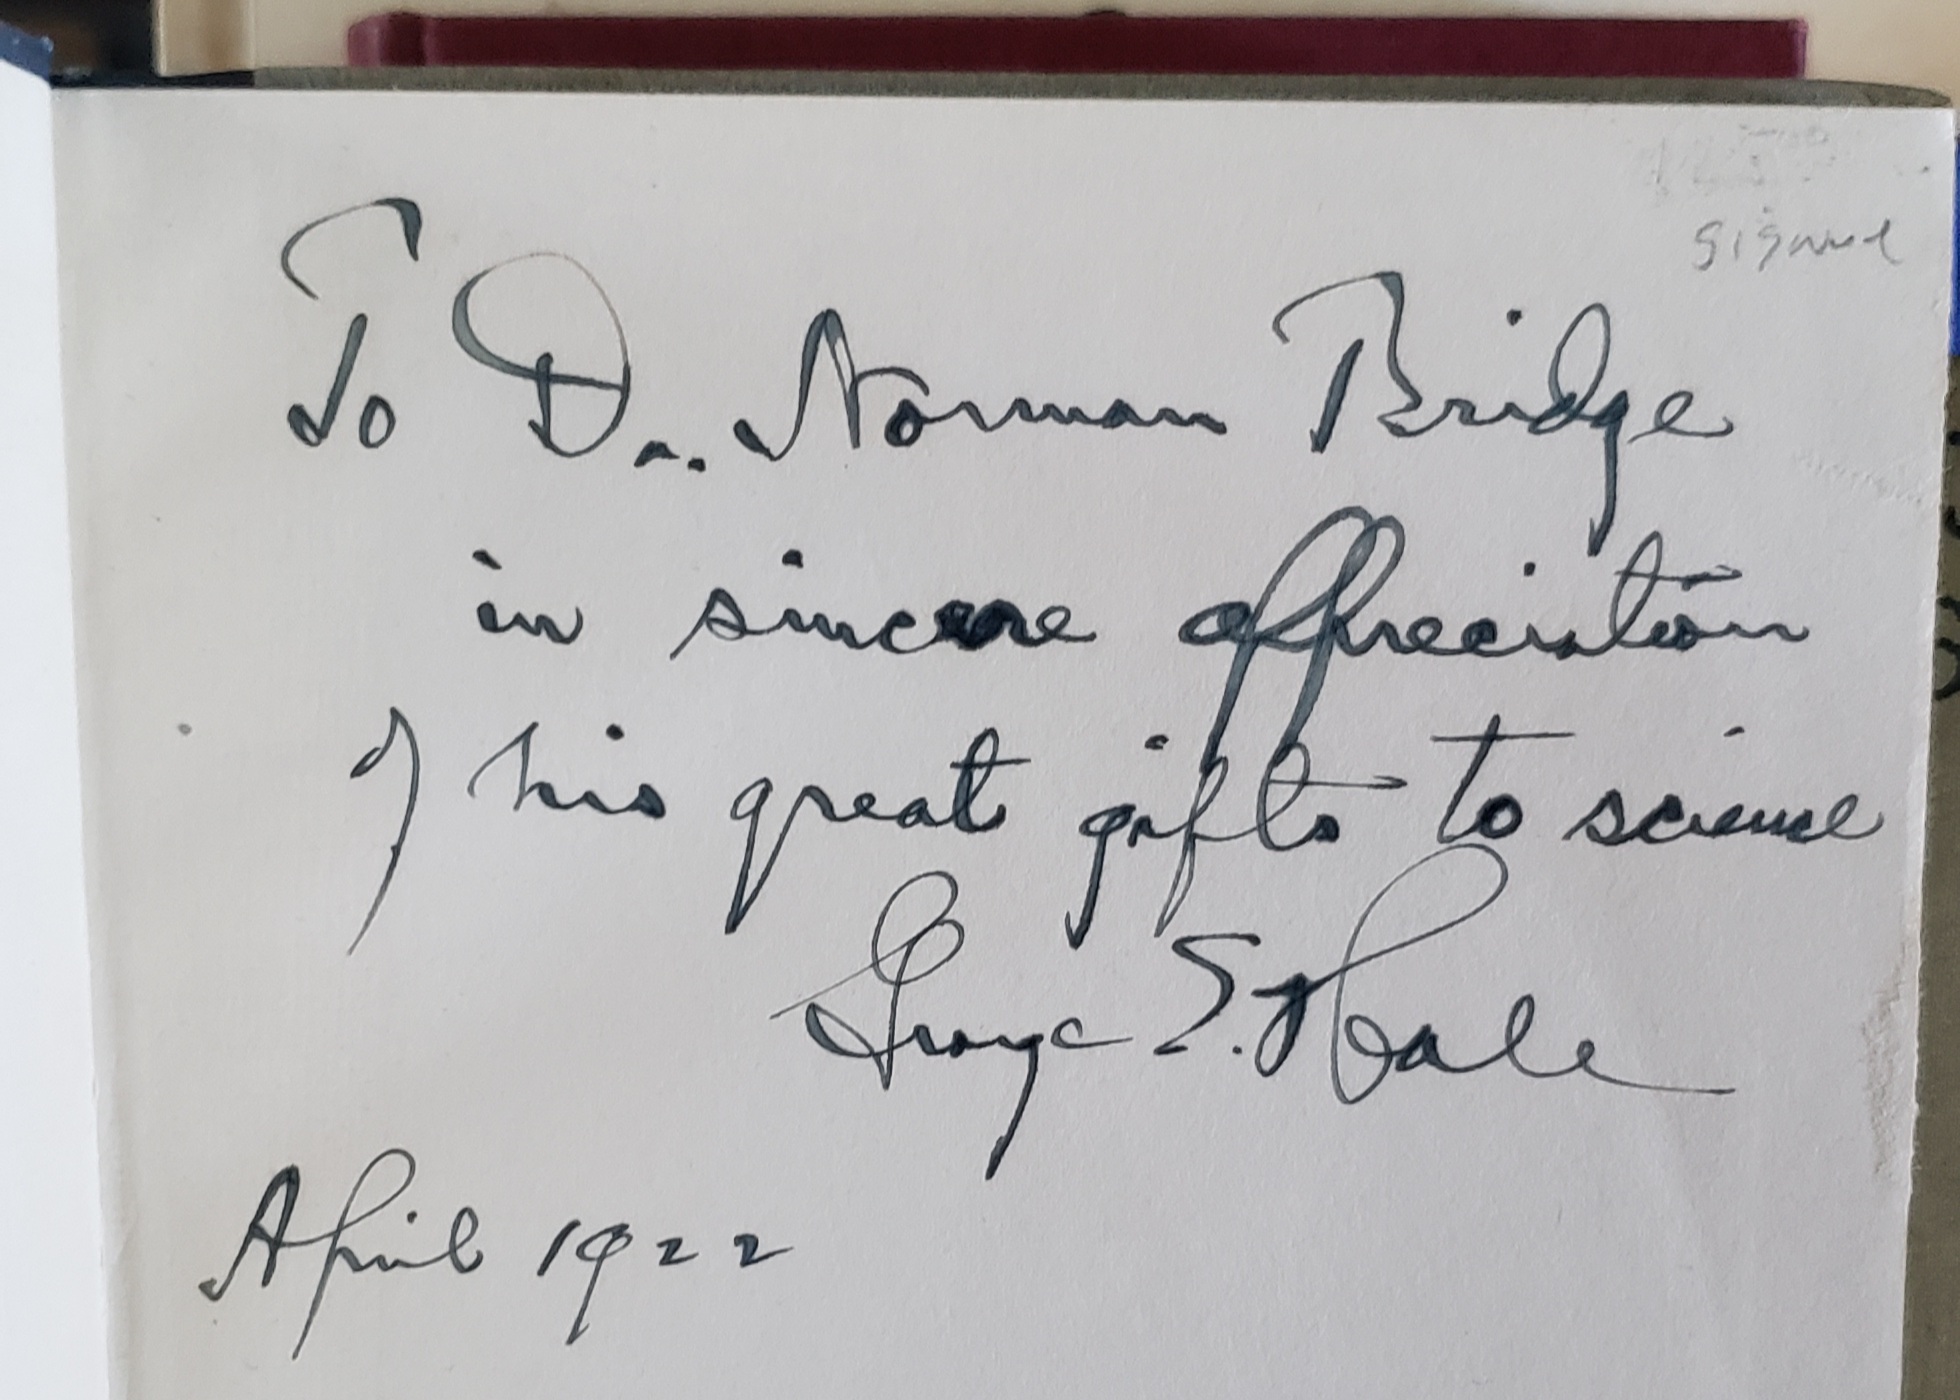 signed
To Dr. Norman Bridge
in sincere appreciation
of his great gifts to science
George E. Hale
April 1922